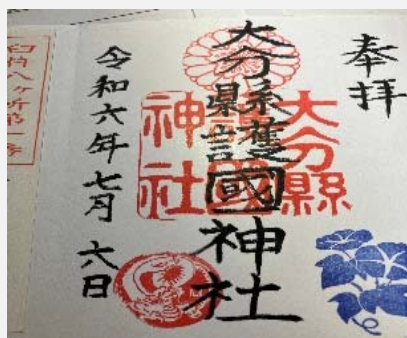 奉拝
大分縣護國神社
大分縣
護國
神社
令和六年七月六日